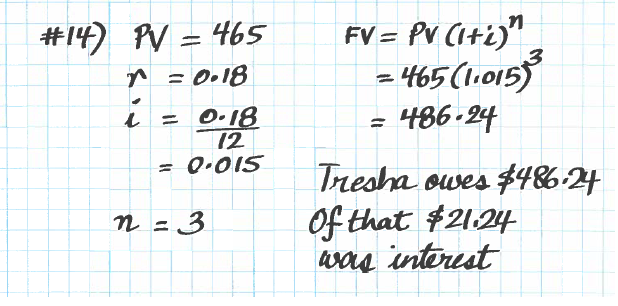 #14) PV = 465
r = 0.18
i = 0.18
12
= 0.015
n = 3
FV = PV (1+i)^n
= 465(1.015)^3
= 486.24
Tresha owes $486.24
Of that $21.24
was interest